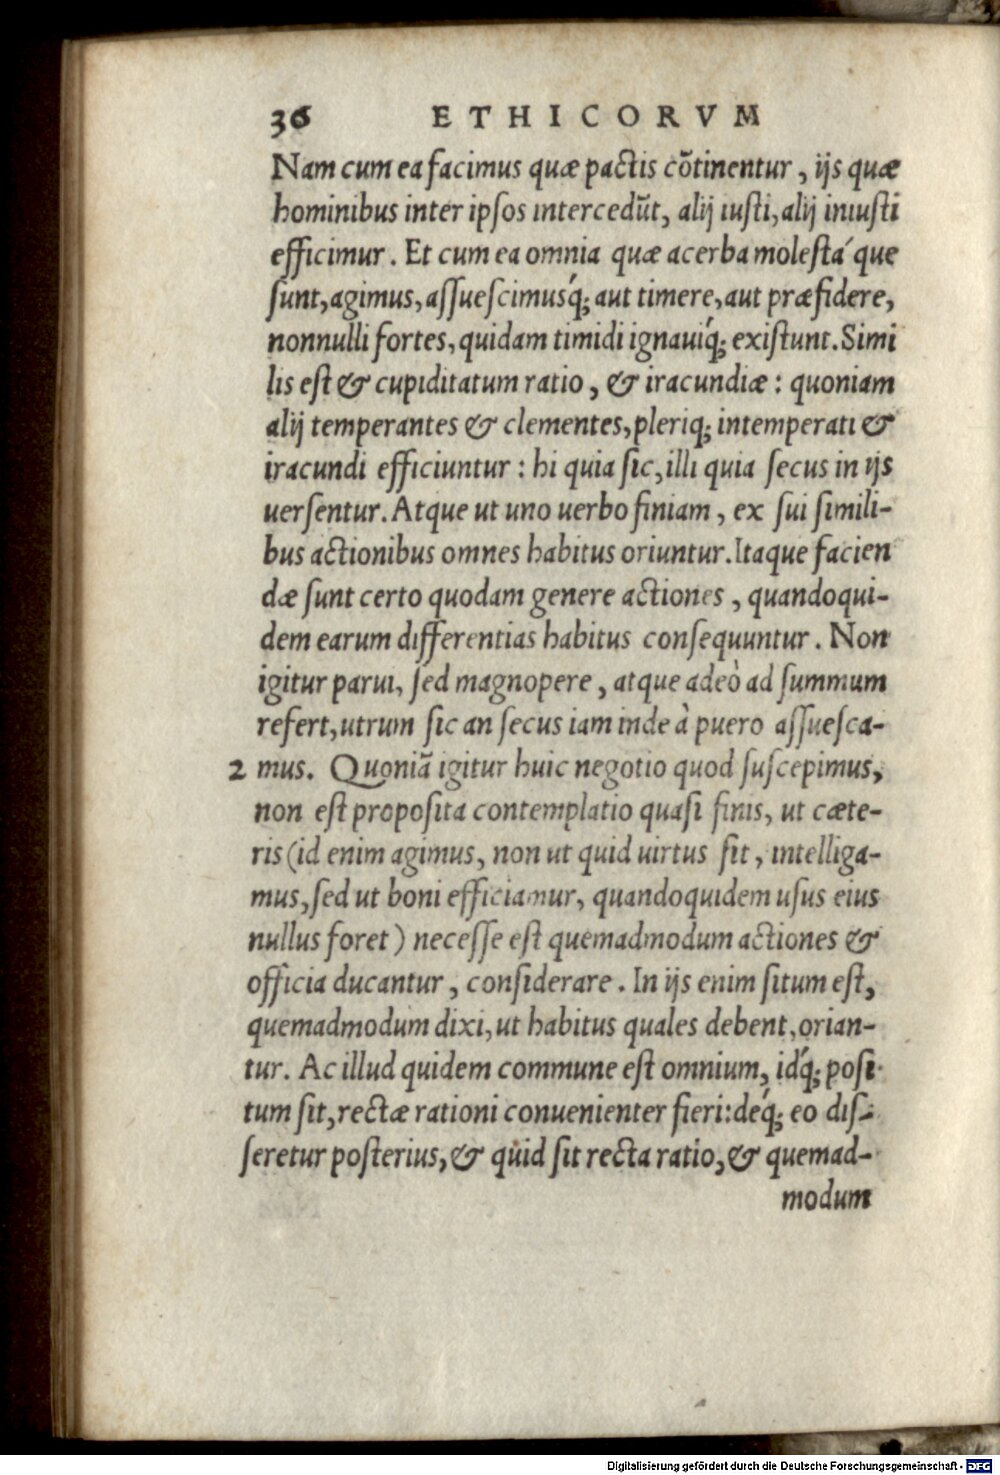 36 ETHICORVM
Nam cum ea facimus quæ pactis cõtinentur, ijs quæ
hominibus inter ipſos intercedũt, alij iuſti, alij iniuſti
efficimur. Et cum ea omnia quæ acerba moleſtá que
ſunt, agimus, aſſueſcimusq́; aut timere, aut præfidere,
nonnulli fortes, quidam timidi ignauiq́; exiſtunt. Simi
lis eſt & cupiditatum ratio, & iracundiæ: quoniam
alij temperantes & clementes, pleriq; intemperati &
iracundi efficiuntur: hi quia ſic, illi quia ſecus in ijs
uerſentur. Atque ut uno uerbo finiam, ex ſui ſimili-
bus actionibus omnes habitus oriuntur. Itaque facien
dæ ſunt certo quodam genere actiones, quandoqui-
dem earum differentias habitus conſequuntur. Non
igitur parui, ſed magnopere, atque adeò ad ſummum
refert, utrum ſic an ſecus iam inde à puero aſſueſca-
2 mus. Quoniã igitur huic negotio quod ſuſcepimus,
non eſt propoſita contemplatio quaſi finis, ut cæte-
ris (id enim agimus, non ut quid uirtus ſit, intelliga-
mus, ſed ut boni efficiamur, quandoquidem uſus eius
nullus foret) neceſſe eſt quemadmodum actiones &
officia ducantur, conſiderare. In ijs enim ſitum eſt,
quemadmodum dixi, ut habitus quales debent, orian-
tur. Ac illud quidem commune eſt omnium, idq́; poſi
tum ſit, rectæ rationi conuenienter fieri: deq́; eo diſ-
ſeretur poſterius, & quid ſit recta ratio, & quemad-
modum
Digitalisierung gefördert durch die Deutsche Forschungsgemeinschaft - DFG